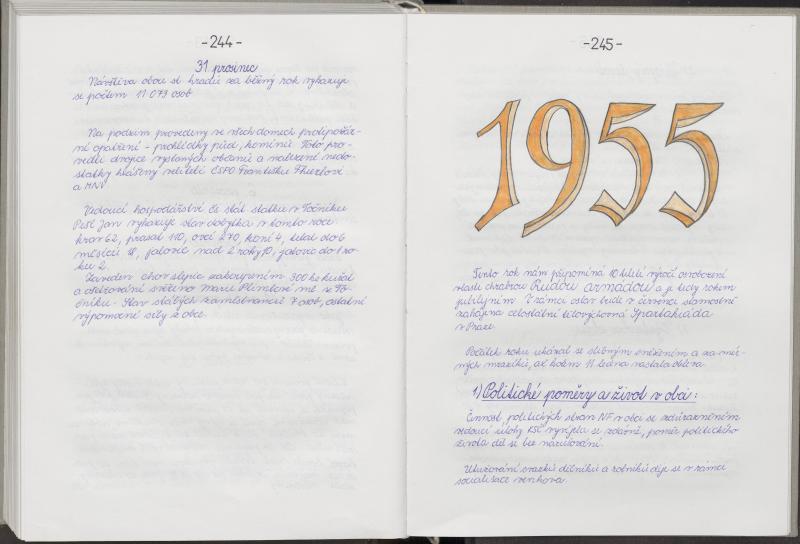 -244-
31 prosinec
Návštěva obcí st. hradu za běžný rok vykazuje
se počtem 11 079 osob
Na podzim provedeny ve všech domech protipožár-
ní opatření - prohlídky půd, komínů. Toto pro-
vedli dvojce vyslaných občanů a nalezené nedo-
statky hlášeny veliteli ČSPO Františku Thurlovi
a MNV
Vedoucí hospodářství čs stát statku v Točníku
Pešl Jan vykazuje stav dobytka v tomto roce:
krav 62, prasat 110, ovcí 270, koní 4, telat do 6
měsíců 18, jalovic nad 2 roky 10, jalovic do 1 ro-
ku 2.
Zaveden chov slepic zakoupením 300 ks kuřat
a ošetřování svěřeno Marii Plimlové z To-
čníku - Stav stálých zaměstnanců 7 osob, ostatní
výpomocné síly z obce.
-245-
1955
Tento rok nám připomíná 10 tiletí výročí osvobození
vlasti chrabrou Rudou armádou a je tedy rokem
jubilejním. V rámci oslav bude v červenci slavnostně
zahájena celostátní tělovýchovná Spartakiáda
v Praze.
Počátek roku ukázal se slibným sněžením a za mír-
ných mrazíků, až kolem 11 ledna nastala obleva.
1) Politické poměry a život v obci:
Činnost politických stran NF v obci se zdůrazněním
vedoucí úlohy KSČ vyvíjela se zdárně, poměr politického
života děl se bez narušování.
Utužování svazků dělníků a rolníků děje se v rámci
socialisace venkova.